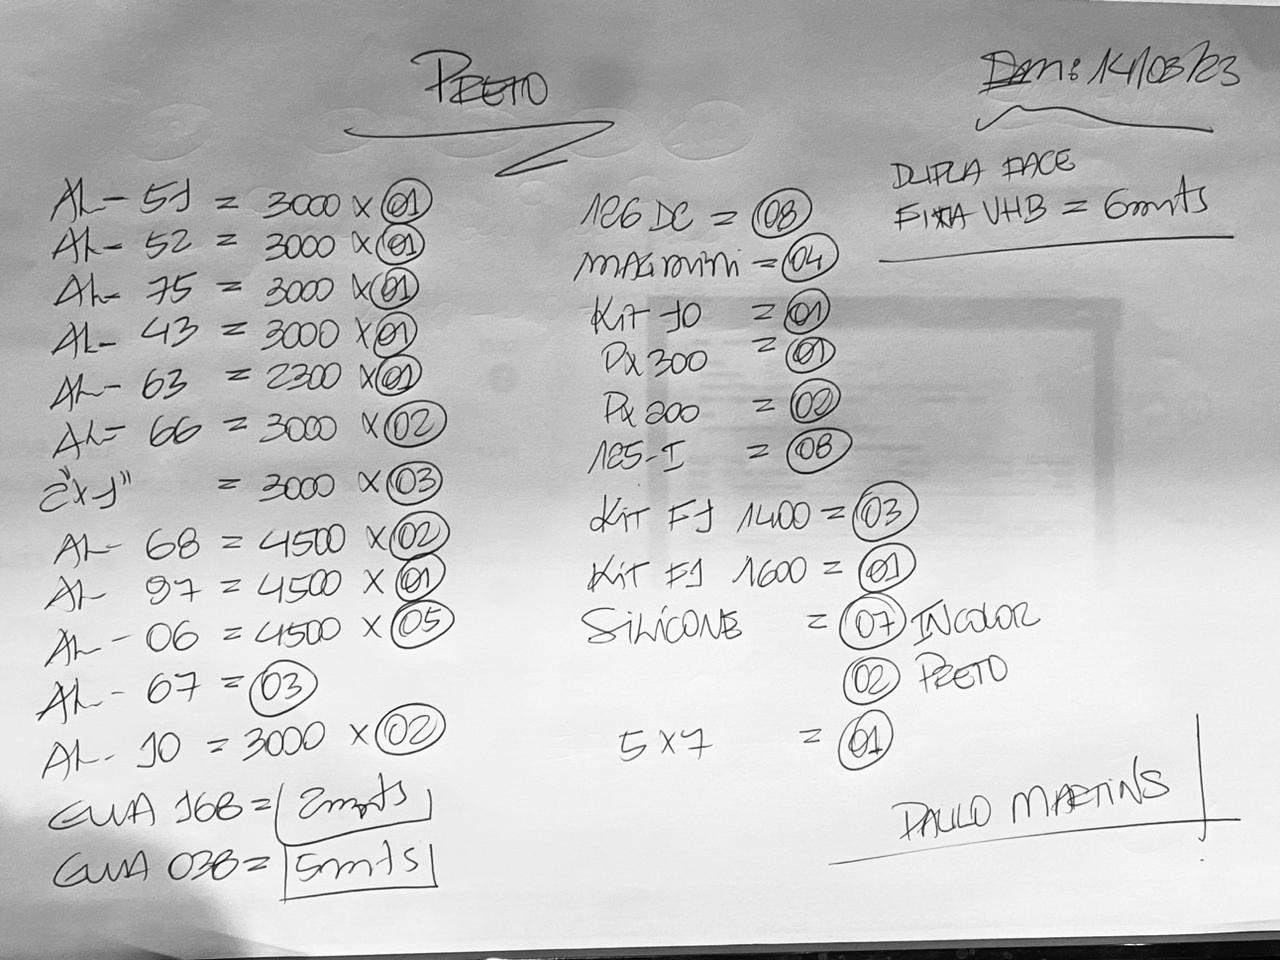 PRETO
14/03/23
AL- 51 = 3000 x 01
AL- 52 = 3000 x 01
AL- 75 = 3000 x 01
AL- 43 = 3000 x 01
AL- 63 = 2300 x 01
AL- 66 = 3000 x 02
2"x1" = 3000 x 03
AL- 68 = 4500 x 02
AL- 97 = 4500 x 01
AL- 06 = 4500 x 05
AL- 67 = 03
AL- 10 = 3000 x 02
GUIA 168 = 2mts
GUIA 038 = 5mts
126 DC = 08
MAGmini = 04
Kit 10 = 01
Px 300 = 01
Px 200 = 02
125-I = 08
Kit F1 1400 = 03
Kit F1 1600 = 01
SILICONE = 07 INCOLOR
02 PRETO
5 x 7 = 01
DUPLA FACE
FIXA VHB = 6mts
PAULO MARTINS